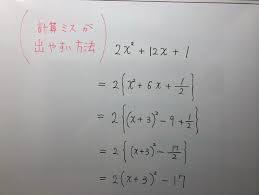 計算ミスが
出やすい方法
2x² + 12x + 1
= 2{x² + 6x + 1/2}
= 2{(x+3)² - 9 + 1/2}
= 2{(x+3)² - 17/2}
= 2(x+3)² - 17